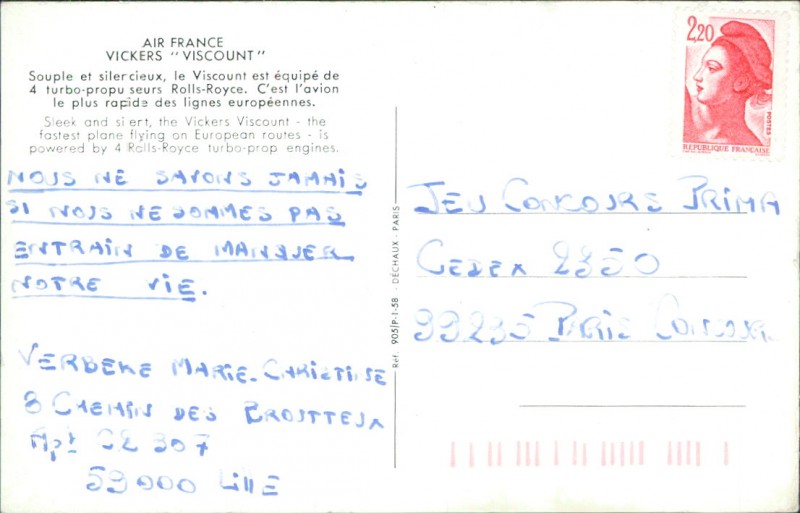 AIR FRANCE
VICKERS "VISCOUNT"
Souple et silencieux, le Viscount est équipé de
4 turbo-propulseurs Rolls-Royce. C'est l'avion
le plus rapide des lignes européennes.
Sleek and silent, the Vickers Viscount - the
fastest plane flying on European routes - is
powered by 4 Rolls-Royce turbo-prop engines.
NOUS NE SAVONS JAMAIS
SI NOUS NE SOMMES PAS
ENTRAIN DE MANQUER
NOTRE VIE.
VERBEKE MARIE-CHRISTINE
8 CHEMIN DES BROUTTEUX
Apt C2 307
59000 LillE
Réf. 905/P-1-58 - DÉCHAUX - PARIS
2,20
POSTES
REPUBLIQUE FRANÇAISE
JEU CONCOURS PRIMA
CEDEX 2350
99235 PARIS CONCOURS